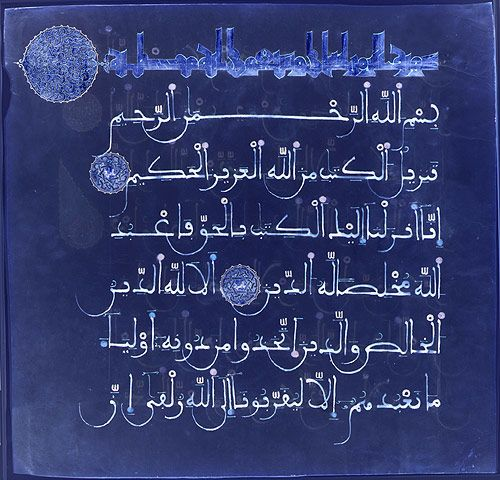 سورة الزمر
بسم الله الرحمن الرحيم
تنزيل الكتب من الله العزيز الحكيم
إنا أنزلنا إليك الكتب بالحق فاعبد
الله مخلصا له الدين ألا لله الدين
الخالص والذين اتخذوا من دونه أوليا
ما نعبدهم إلا ليقربونا إلى الله زلفى إن